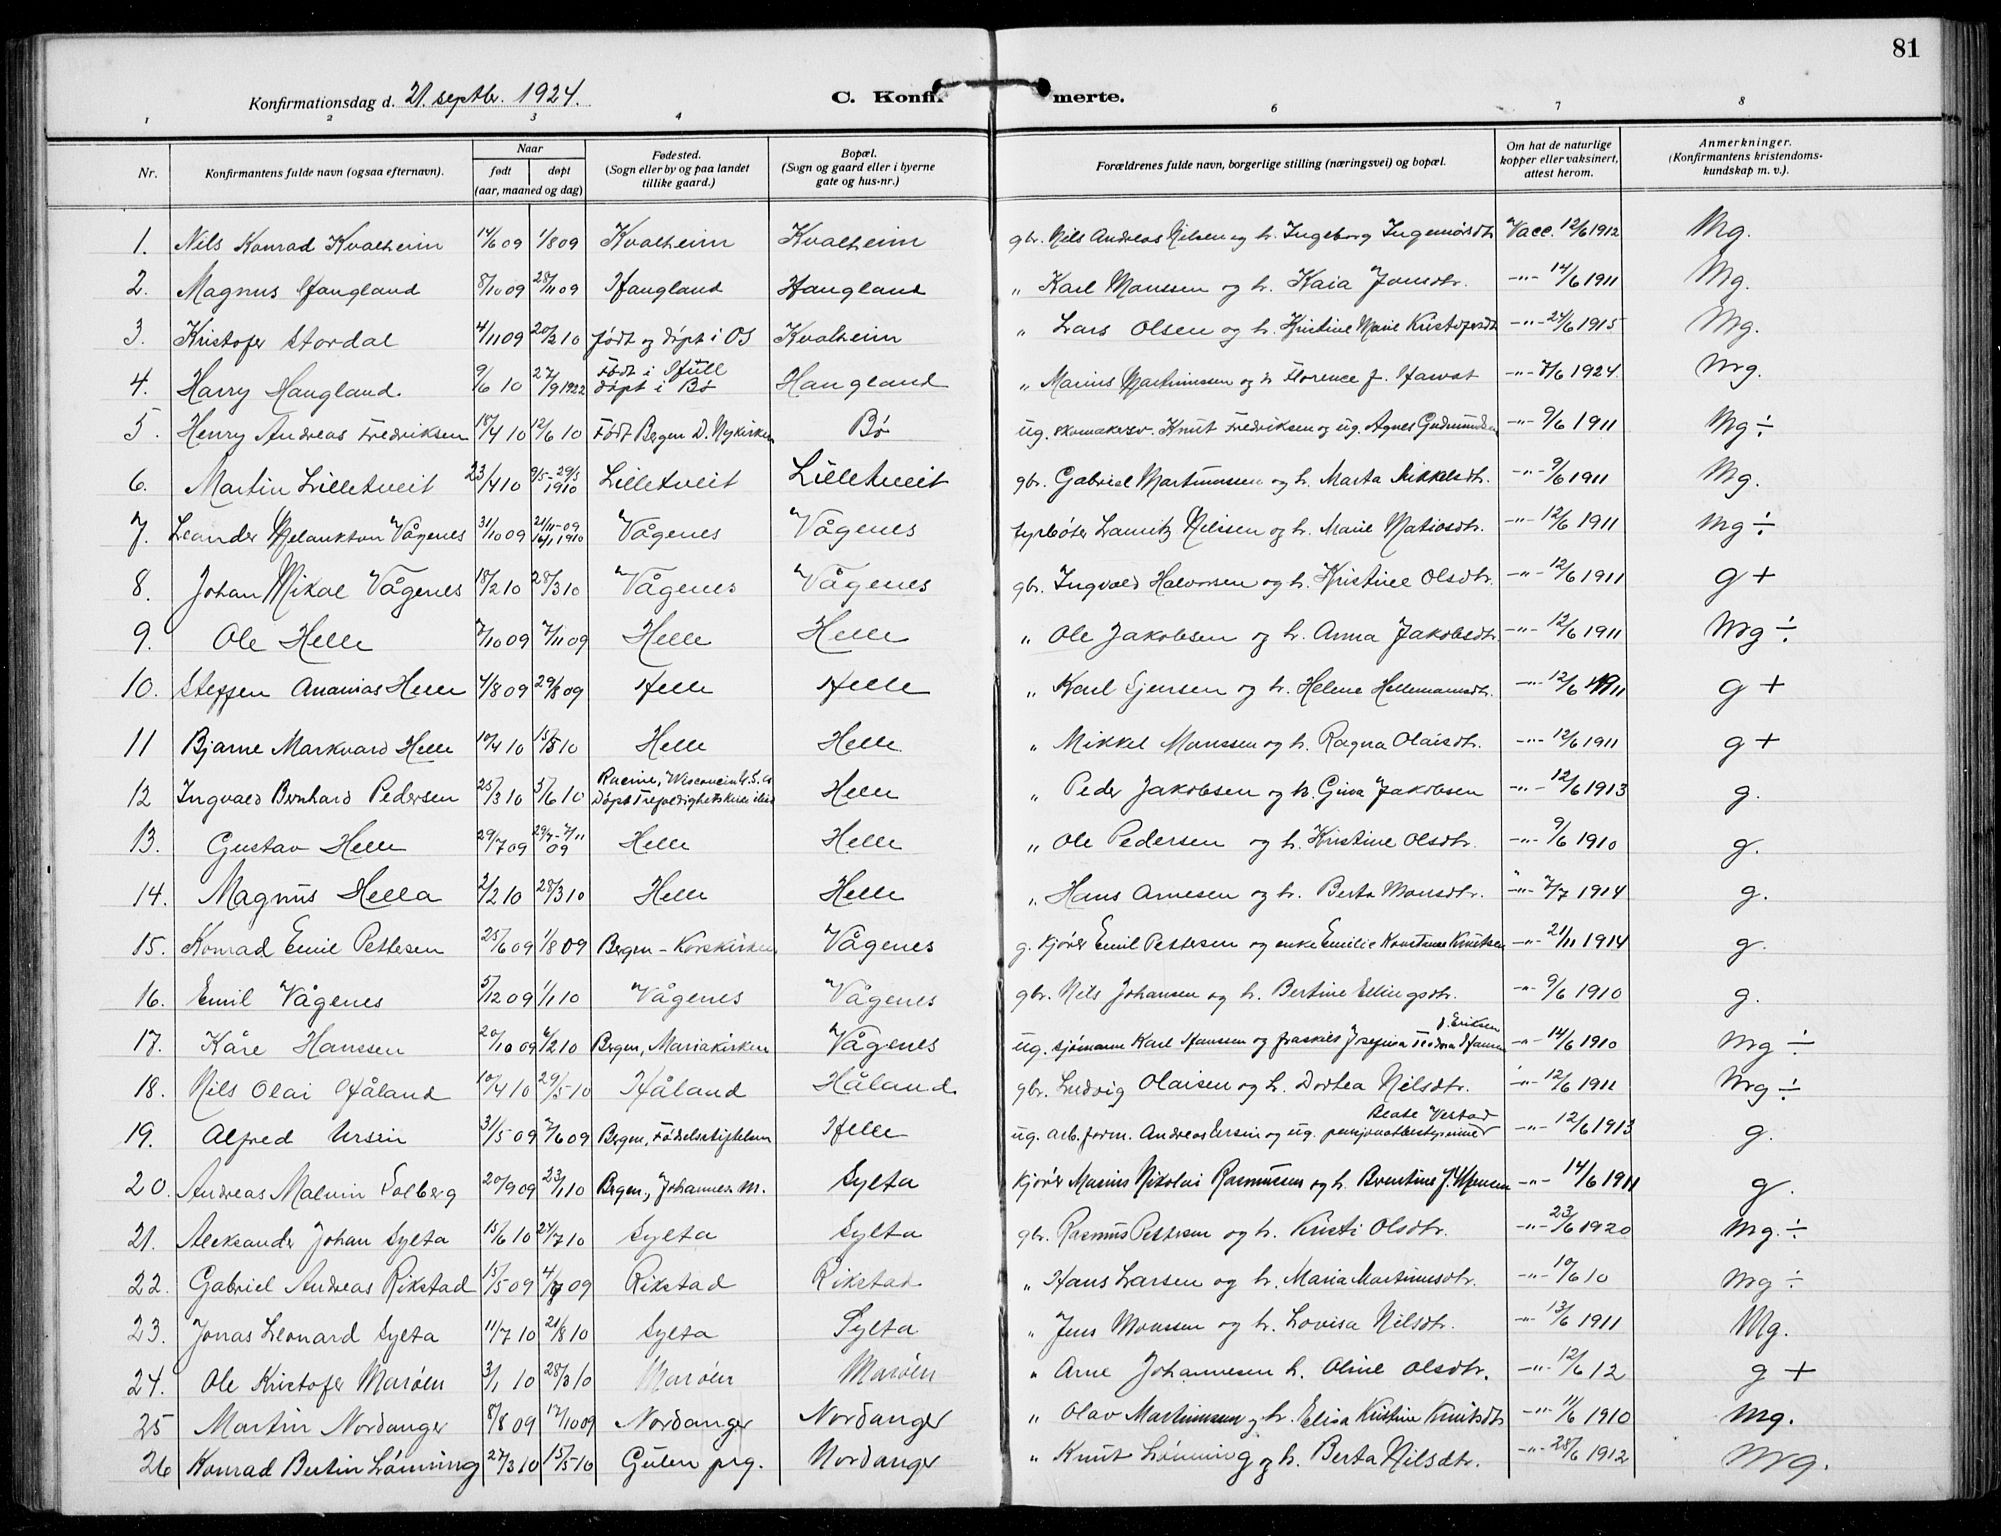 81
Konfirmationsdag d. 21. septbr. 1924. C. Konfir merte.
1 2 3 4 6 7 8
Nr. Konfirmantens fulde navn (ogsaa efternavn). Naar født døpt (aar, maaned og dag) Fødested. (Sogn eller by og paa landet tillike gaard.) Bopæl. (Sogn og gaard eller i byerne gate og hus-nr.) Forældrenes fulde navn, borgerlige stilling (næringsvei) og bopæl. Om hat de naturlige kopper eller vaksinert, attest herom. Anmerkninger. (Konfirmantens kristendoms-kundskap m. v.).
1. Nils Konrad Kvalheim 14/6 09 1/8 09 Kvalheim Kvalheim gbr. Nils Andreas Nilsen og h. Ingeborg Vacc. 12/6 1912 Mg.
2. Magnus Haugland 8/10 09 28/11 09 Haugland Haugland " Karl Monssen og h. Kaia Jonsdtr. -"- 14/6 1911 Mg.
3. Kristofer Stordal 4/11 09 20/2 10 født og døpt i Os Kvalheim " Lars Olsen og h. Kristine Marie Kristofersdt -"- 24/6 1915 Mg.
4. Harry Haugland. 9/6 10 27/9 1922 Født i Hull døpt i Bø Haugland " Marius Martinussen og h. Florence J. -"- 7/6 1924. Mg.
5. Henry Andreas Fredriksen 18/4 10 12/6 10 Født Bergen D. Nykirken Bø ug. skomakersv. Knut Fredriksen og ug. Agnes -"- 9/6 1911 Mg ÷
6. Martin Lilletveit 23/4 10 9/5-29/5 1910 Lilletveit Lilletveit gbr. Gabriel Martinussen og h. Marta Mikkelsdtr. -"- 9/6 1911 Mg.
7. Leander Melankton Vågenes 31/10 09 21/11-09 16/1 1910 Vågenes Vågenes fyrbøter Lauritz Nilsen og h. Marie Matiasdtr. -"- 12/6 1911 Mg ÷
8. Johan Mikal Vågenes 18/2 10 28/3 10 Vågenes Vågenes gbr. Ingvald Halvorsen og h. Kristine Olsdtr. -"- 12/6 1911 g +
9. Ole Helle 7/10 09 7/11 09 Helle Helle " Ole Jakobsen og h. Anna Jakobsdtr. -"- 12/6 1911 Mg ÷
10. Steffen Ananias Helle 4/8 09 29/8 09 Helle Helle " Karl Ejensen og h. Helene Hellemannsdtr. -"- 12/6 1911 g +
11 Bjarne Markvard Helle 10/4 10 15/5 10 Helle Helle " Mikkel Monssen og h. Ragna Olaisdtr. -"- 12/6 1911 g +
12 Ingvald Bernhard Pedersen 25/3 10 5/6 10 Racine, Wisconsin U.S.A Døpt Trefoldighetskirke Helle " Peder Jakobsen og h. Gina Jakobsen -"- 12/6 1913 g.
13. Gustav Helle 29/7 09 29/7-7/11 09 Helle Helle " Ole Pedersen og h. Kristine Olsdtr. -"- 9/6 1910 g.
14. Magnus Hella 2/2 10 28/3 10 Helle Helle " Hans Arnesen og h. Berta Monsdtr. -"- 7/7 1914 g.
15. Konrad Emil Pettesen 25/6 09 1/8 09 Bergen - Korskirken Vågenes g. kjører Emil Pettersen og enke Emilie Konstanse Knutsen -"- 21/11 1914 g.
16. Emil Vågenes 5/12 09 1/1 10 Vågenes Vågenes gbr. Nils Johansen og h. Bertine Ellingsdtr. -"- 9/6 1910 g.
17. Kåre Hanssen 20/10 09 6/2 10 Bergen, Mariakirken Vågenes ug. sjømann Karl Hanssen og fraskilt Josefina Teodora Hansen f. Eriksen -"- 14/6 1910 Mg ÷
18. Nils Olai Håland 10/4 10 29/5 10 Håland Håland gbr. Ludvig Olaisen og h. Dortea Nilsdtr. -"- 12/6 1911 Mg ÷
19. Alfred Ursin 31/5 09 7/6 09 Bergen, Fødselsstiftelsen Helle ug. arb. form. Andreas Ursin og ug. Beate Vestad -"- 12/6 1913 g.
20. Andreas Malvin Solberg 20/9 09 23/1 10 Bergen, Johannes M. Sylta kjører Marius Nikolai Rasmussen og h. Berntine J. Monsen -"- 14/6 1911 g.
21. Aleksander Johan Sylta 15/6 10 24/7 10 Sylta Sylta gbr. Rasmus Pettersen og h. Kristi Olsdtr. -"- 23/6 1920 Mg. ÷
22. Gabriel Andreas Rikstad 15/5 09 4/7 09 Rikstad Rikstad " Hans Larsen og h. Maria Martinusdtr. -"- 10/6 10 Mg ÷
23. Jonas Leonard Sylta 11/7 10 21/8 10 Sylta Sylta " Jens Monsen og h. Lovisa Nilsdtr. -"- 13/6 1911 Mg.
24. Ole Kristofer Marøen 3/1 10 28/3 10 Marøen Marøen " Arne Johannesen h. Oline Olsdtr. -"- 12/6 12 g +
25 Martin Nordanger 8/8 09 17/10 09 Nordanger Nordanger " Olav Martinussen og h. Elisa Kristine Knutsdtr -"- 11/6 1910 Mg.
26 Konrad Bertin Lønning 27/3 10 15/5 10 Gulen prg. Nordanger " Knut Lønning og h. Berta Nilsdtr. -"- 28/6 1912 Mg.